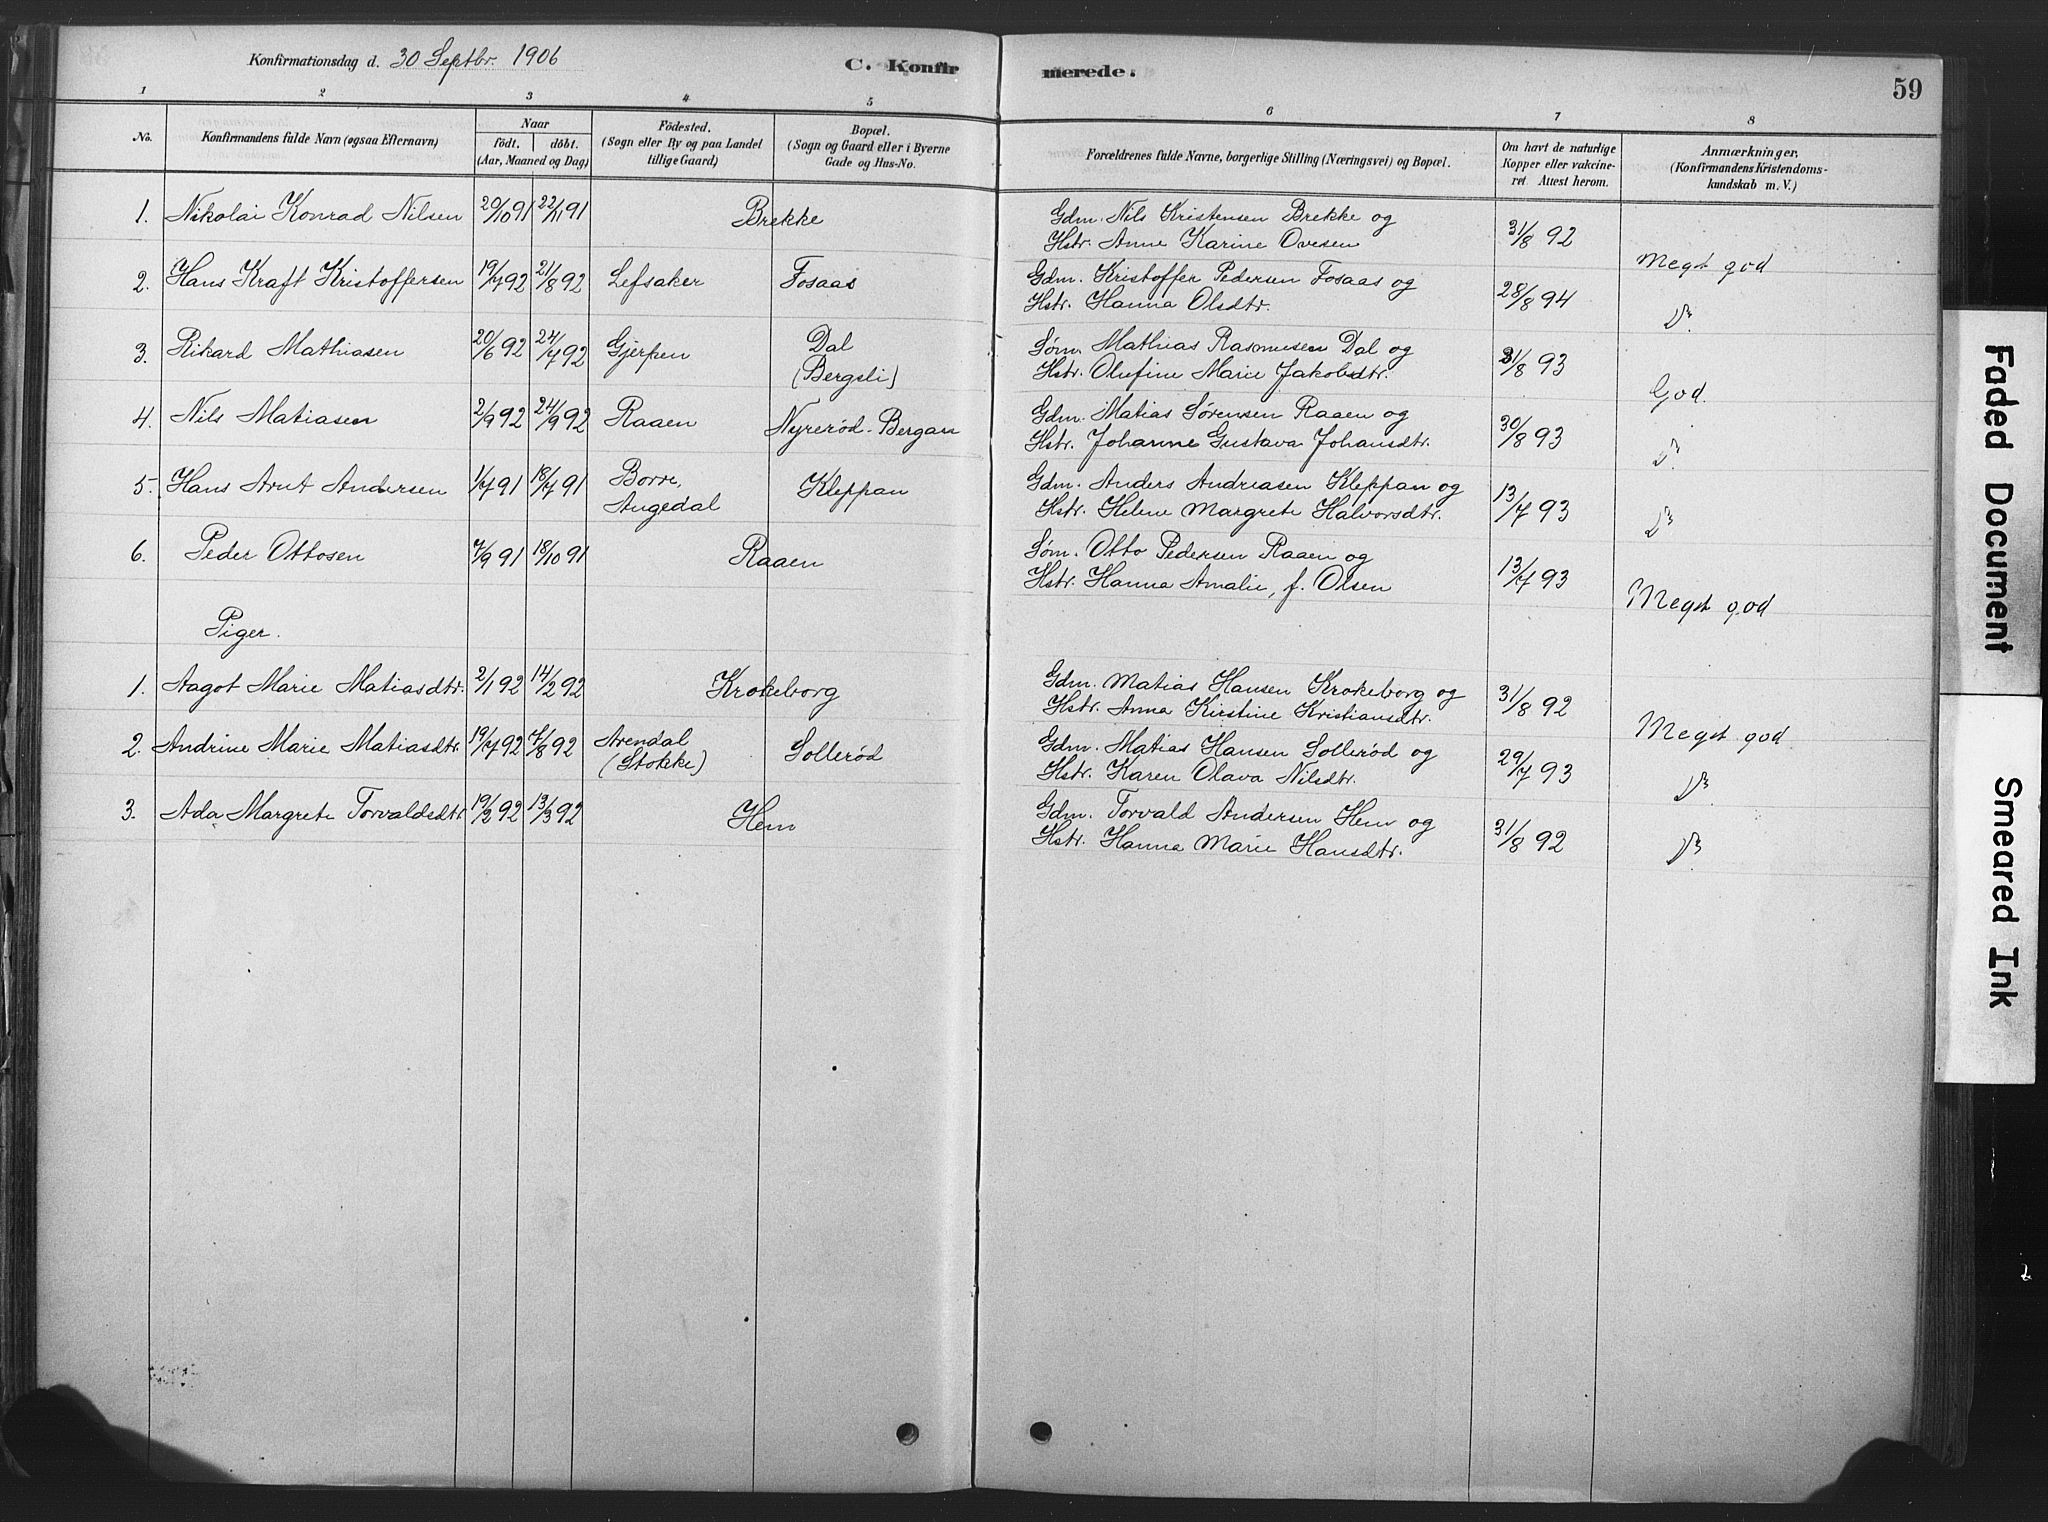 Konfirmationsdag d. 30 Septbr. 1906
C. Konfirmerede.
59
1 2 3 4 5 6 7 8
No.
Konfirmandens fulde Navn (ogsaa Efternavn)
Naar
födt. döbt.
(Aar, Maaned og Dag)
Födested.
(Sogn eller By og paa Landet
tillige Gaard)
Bopæl.
(Sogn og Gaard eller i Byerne
Gade og Hus-No.
Forældrenes fulde Navne, borgerlige Stilling (Næringsvei) og Bopæl.
Om havt de naturlige
Kopper eller vakcine-
ret Attest herom.
Anmærkninger.
(Konfirmandens Kristendoms-
kundskab m. V.)
1. Nikolai Konrad Nilsen 20/10 91 22/11 91 Brekke
Gdm. Nils Kristensen Brekke og
Hstr. Anne Karine Ovesen 31/8 92 Meget god
2. Hans Kraft Kristoffersen 19/7 92 21/8 92 Lefsaker Fosaas
Gdm. Kristoffer Pedersen Fosaas og
Hstr. Hanna Olsdtr. 28/8 94
3. Rikard Mathiasen 20/6 92 24/7 92 Gjerpen Dal
(Bergsli)
Søm. Mathias Rasmusen Dal og
Hstr. Olufine Marie Jakobsdtr. 31/8 93 God.
4. Nils Matiasen 2/9 92 24/9 92 Raaen Nyrerød-Bergan
Gdm. Matias Sørensen Raaen og
Hstr. Johanne Gustava Johansdtr. 30/8 93
5. Hans Arnt Andersen 1/7 91 18/7 91 Borre, Kleppan
Angedal
Gdm. Anders Andreasen Kleppan og
Hstr. Helene Margrete Halvorsdtr. 13/7 93
6. Peder Ottosen 7/9 91 18/10 91 Raaen
Søm. Otto Pedersen Raaen og
Hstr. Hanna Amalie, f. Olsen 13/7 93 Meget god
Piger.
1. Aagot Marie Matiasdtr. 2/1 92 14/2 92 Krokeborg
Gdm. Matias Hansen Krokeborg og
Hstr. Anna Kirstine Kristiansdtr. 31/8 92 Meget god
2. Andrine Marie Matiasdtr. 19/7 92 7/8 92 Arendal Sollerød
(Stokke)
Gdm. Matias Hansen Sollerød og
Hstr. Karen Olava Nilsdtr. 29/7 93
3. Ada Margrete Torvaldsdtr. 19/2 92 13/3 92 Hem
Gdm. Torvald Andersen Hem og
Hstr. Hanna Marie Hansdtr. 31/8 92
Faded Document
Smeared Ink